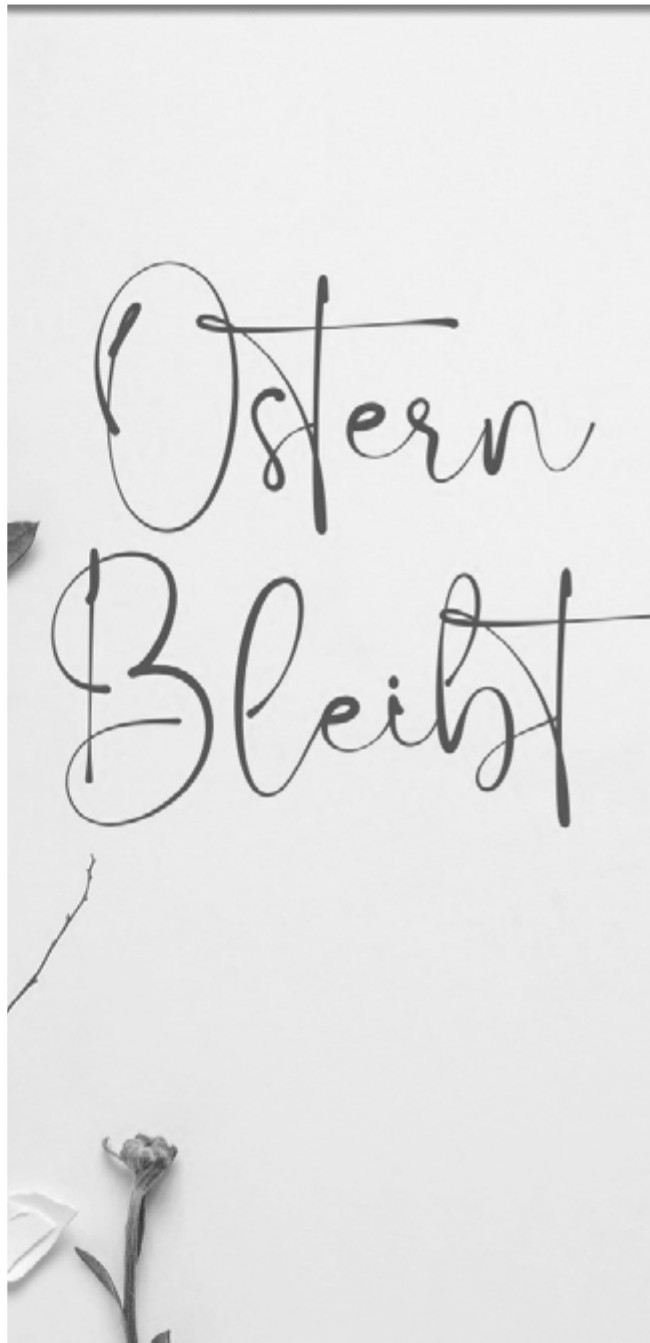 Ostern
Bleibt